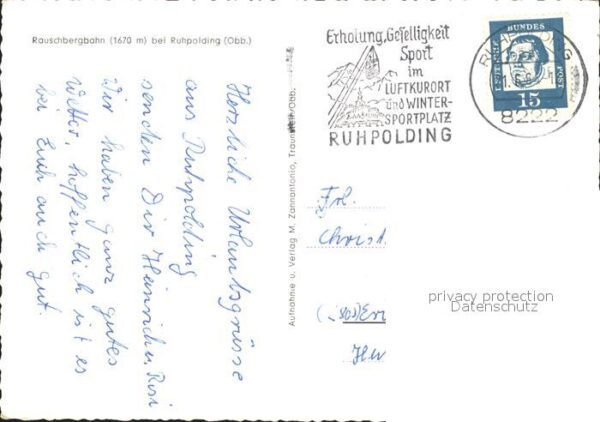 Rauschbergbahn (1670 m) bei Ruhpolding (Obb.)
Herzliche Urlaubsgrüsse
aus Ruhpolding
senden Dir Heinrich u. Rosi
Wir haben ganz gutes
Wetter, hoffentlich ist es
bei Euch auch gut.
Aufnahme u. Verlag M. Zannantonio, Traunstein/Obb.
Erholung, Geselligkeit
Sport
im
LUFTKURORT
und WINTER-
SPORTPLATZ
RUHPOLDING
8222
DEUTSCHE BUNDESPOST
15
Frl.
Christ
Her
privacy protection
Datenschutz